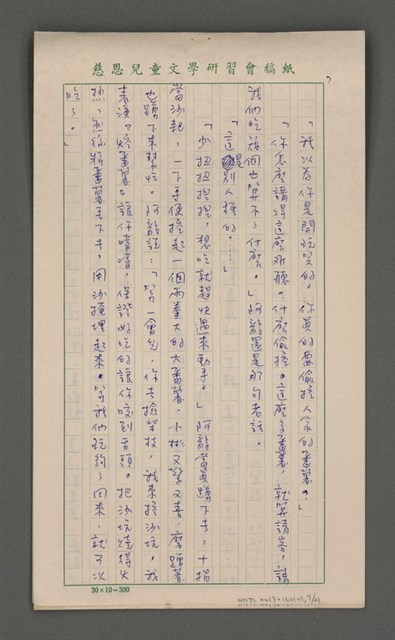 慈恩兒童文學研習會稿紙
7
「我以為你是開玩笑的。你真的要偷挖人家的番薯。」
「你怎麼講得這麼難聽。什麼偷挖。這麼多番薯,就算請客,請
我們吃幾個也算不了什麼。」阿龍還是那句老話。
「這是別人種的…。」
「少扭扭捏捏,想吃就趕快過來動手。」阿龍蹲下去,十指
當沙耙,一下子便挖起一個兩拳大的大番薯,小彬又驚又喜,
也蹲下來幫忙。阿龍說:「等一會兒,你去撿柴枝,我來挖沙坑,我
表演『焢番薯』讓你嚐嚐,保證好吃的讓你咬到舌頭。把沙坑燒得火
熱,然後將番薯丟下去,用沙掩埋起來。等我們玩夠了回來,就可以
吃了。」
30×10=300